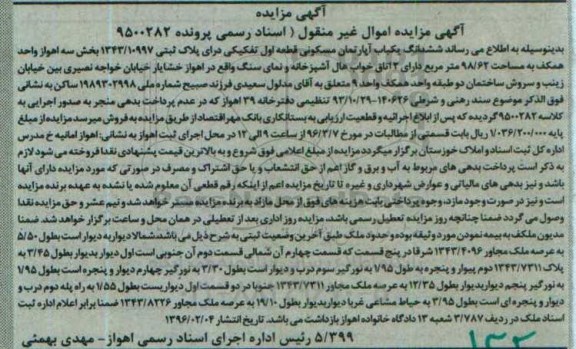 آگهی مزایده
آگهی مزایده اموال غیر منقول ( اسناد رسمی پرونده ۹۵۰۰۲۸۲
بدینوسیله به اطلاع می رساند ششدانگ یکباب آپارتمان مسکونی قطعه اول تفکیکی درای پلاک ثبتی ۱۳۴۳/۱۰۹۹۷ بخش سه اهواز واحد
همکف به مساحت ۹۸/۶۲ متر مربع دارای ۲ اتاق خواب هال آشپزخانه و نمای سنگ واقع در اهواز خشایار خیابان خواجه نصیری بین خیابان
زینب و سروش ساختمان دو طبقه واحد همکف واحد ۹ متعلق به آقای مدلول سعیدی فرزند صبیح شماره ملی ۱۹۸۹۳۰۲۹۹۸ ساکن به نشانی
فوق الذکر موضوع سند رهنی و شرطی ۱۴۰۶۲۶-۹۲/۱۰/۲۹ تنظیمی دفترخانه ۳۹ اهواز که در عدم پرداخت بدهی منجر به صدور اجرایی به
کلاسه ۹۵۰۰۲۸۲ گردیده که پس از ابلاغ اجرائیه و قطعیت ارزیابی به بستانکاری بانک مهر اقتصاد از طریق مزایده به فروش میرسد مزایده از مبلغ
پایه ۷۰۳۶/۲۰۰/۰۰۰ ریال بابت قسمتی از مطالبات در مورخ ۹۶/۳/۷ از ساعت ۹ الی ۱۲ در محل اجرای ثبت اهواز به نشانی: اهواز امانیه خ مدرس
اداره کل ثبت اسناد و املاک خوزستان برگزار میگردد مزایده از مبلغ اعلامی فوق شروع و به بالاترین قیمت پیشنهادی نقدا فروخته می شود لازم
به ذکر است پرداخت بدهی های مربوط به آب و برق و گاز اعم از حق انتشعاب و یا حق اشتراک و مصرف در صورتی که مورد مزایده دارای آنها
باشد و نیز بدهی های مالیاتی و عوارض شهرداری و غیره تا تاریخ مزایده اعم از اینکه رقم قطعی آن معلوم شده یا نشده به عهده برنده مزایده
است و نیز در صورت وجود مازد، وجوه پرداختی بابت هزینه های فوق از محل مازاد به برنده مزایده مسترد خواهد شد و نیم عشر و حق مزایده نقدا
وصول می گردد ضمنا چنانچه روز مزایده تعطیل رسمی باشد، مزایده روز اداری بعد از تعطیلی در همان محل و ساعت برگزار خواهد شد. ضمنا
مدیون مکلف به بیمه نمودن مورد وثیقه بوده و حدود ملک طبق آخرین وضعیت ثبتی به شرح ذیل می باشد: شمالا دیوار به دیوار است بطول ۵/۵۰
به عرصه ملک مجاور ۱۳۴۳/۴۰۹۶ شرقا در پنج قسمت که قسمت چهارم آن شمالی قسمت دوم آن جنوبی است اول دیوار بدیوار بطول ۳/۴۵ به
پلاک ۱۳۴۳/۷۳۱۱ دوم پیوار و پنجره به طول ۱/۹۵ به نورگیر سوم درب و دیوار است بطول ۳/۳۰ به نورگیر چهارم دیوار و پنجره است بطول ۱/۹۵
به نورگیر پنجم دیوار بدیوار بطول ۱۲/۳۵ به عرصه ملک مجاور ۱۳۴۳/۷۳۱۱ جنوبا در دو قسمت اول دیواریست بطول ۱/۵۵ به راه پله دوم درب و
دیوار و پنجره ای است بطول ۳/۹۵ به حیاط مشاعی غربا دیوار بدیوار بطول ۱۹/۱۰ به عرصه ملک مجاور ۱۳۴۳/۸۲۲۶ ضمنا برابر اعلام اداره ثبت
اسناد ملک در ردیف ۳/۷۸۷ شعبه ۱۳ دادگاه خانواده اهواز بازداشت می باشد. تاریخ انتشار ۱۳۹۶/۰۲/۰۴
۵/۳۹۹ رئیس اداره اجرای اسناد رسمی اهواز- مهدی بهمئی